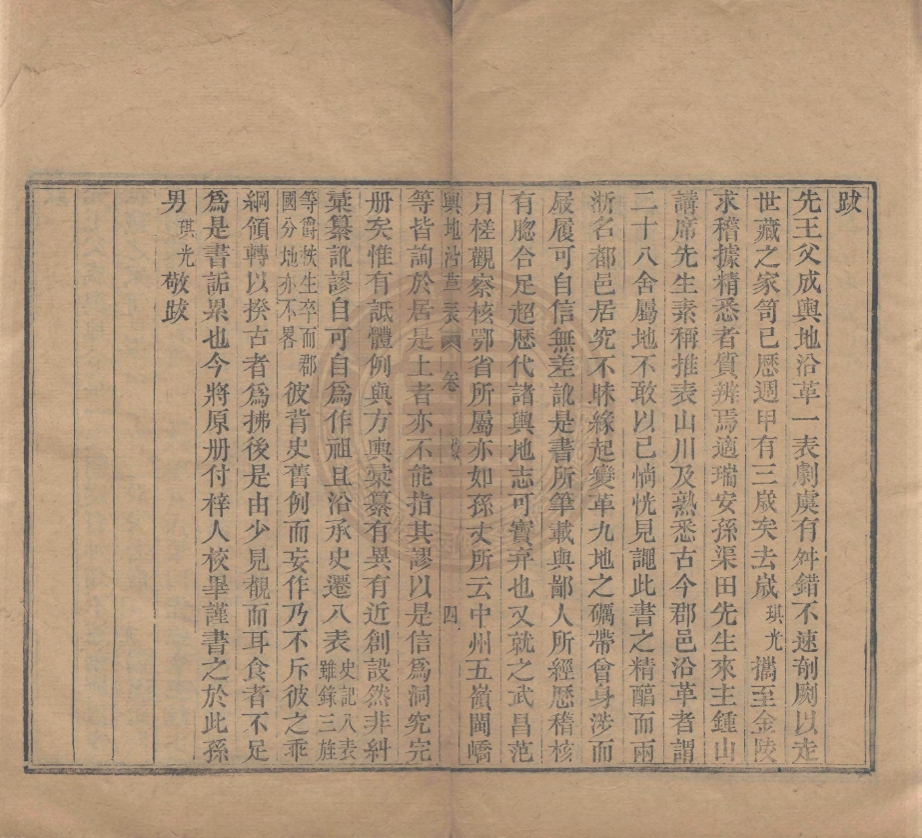 跋
先王父成輿地沿革一表劇虞有舛錯不速剞劂以走
世藏之家笥已歷週甲有三歲矣去歲琪光攜至金陵
求稽據精悉者質辨焉適瑞安孫渠田先生來主鍾山
講席先生素稱推表山川及熟悉古今郡邑沿革者謂
二十八舍屬地不敢以己惝恍見讕此書之精醞而兩
浙名都邑居究不昧緣起變革九地之礪帶曾身涉而
屐履可自信無差訛是書所筆載與鄙人所經歷稽核
有脗合足超歷代諸輿地志可寶弃也又就之武昌范
月槎觀察核鄂省所屬亦如孫丈所云中州五嶺閩嶠
輿地沿革表 卷 跋 四
等皆詢於居是土者亦不能指其謬以是信爲洞究完
册矣惟有詆體例與方輿彙纂有異有近創設然非糾
彙纂訛謬自可自爲作祖且沿承史遷八表史記八表雖錄三旌
等爵秩生卒而郡國分地亦不畧彼背史舊例而妄作乃不斥彼之乖
綱領轉以揆古者爲拂後是由少見觀而耳食者不足
爲是書詬累也今將原册付梓人校畢謹書之於此孫
男琪光敬跋